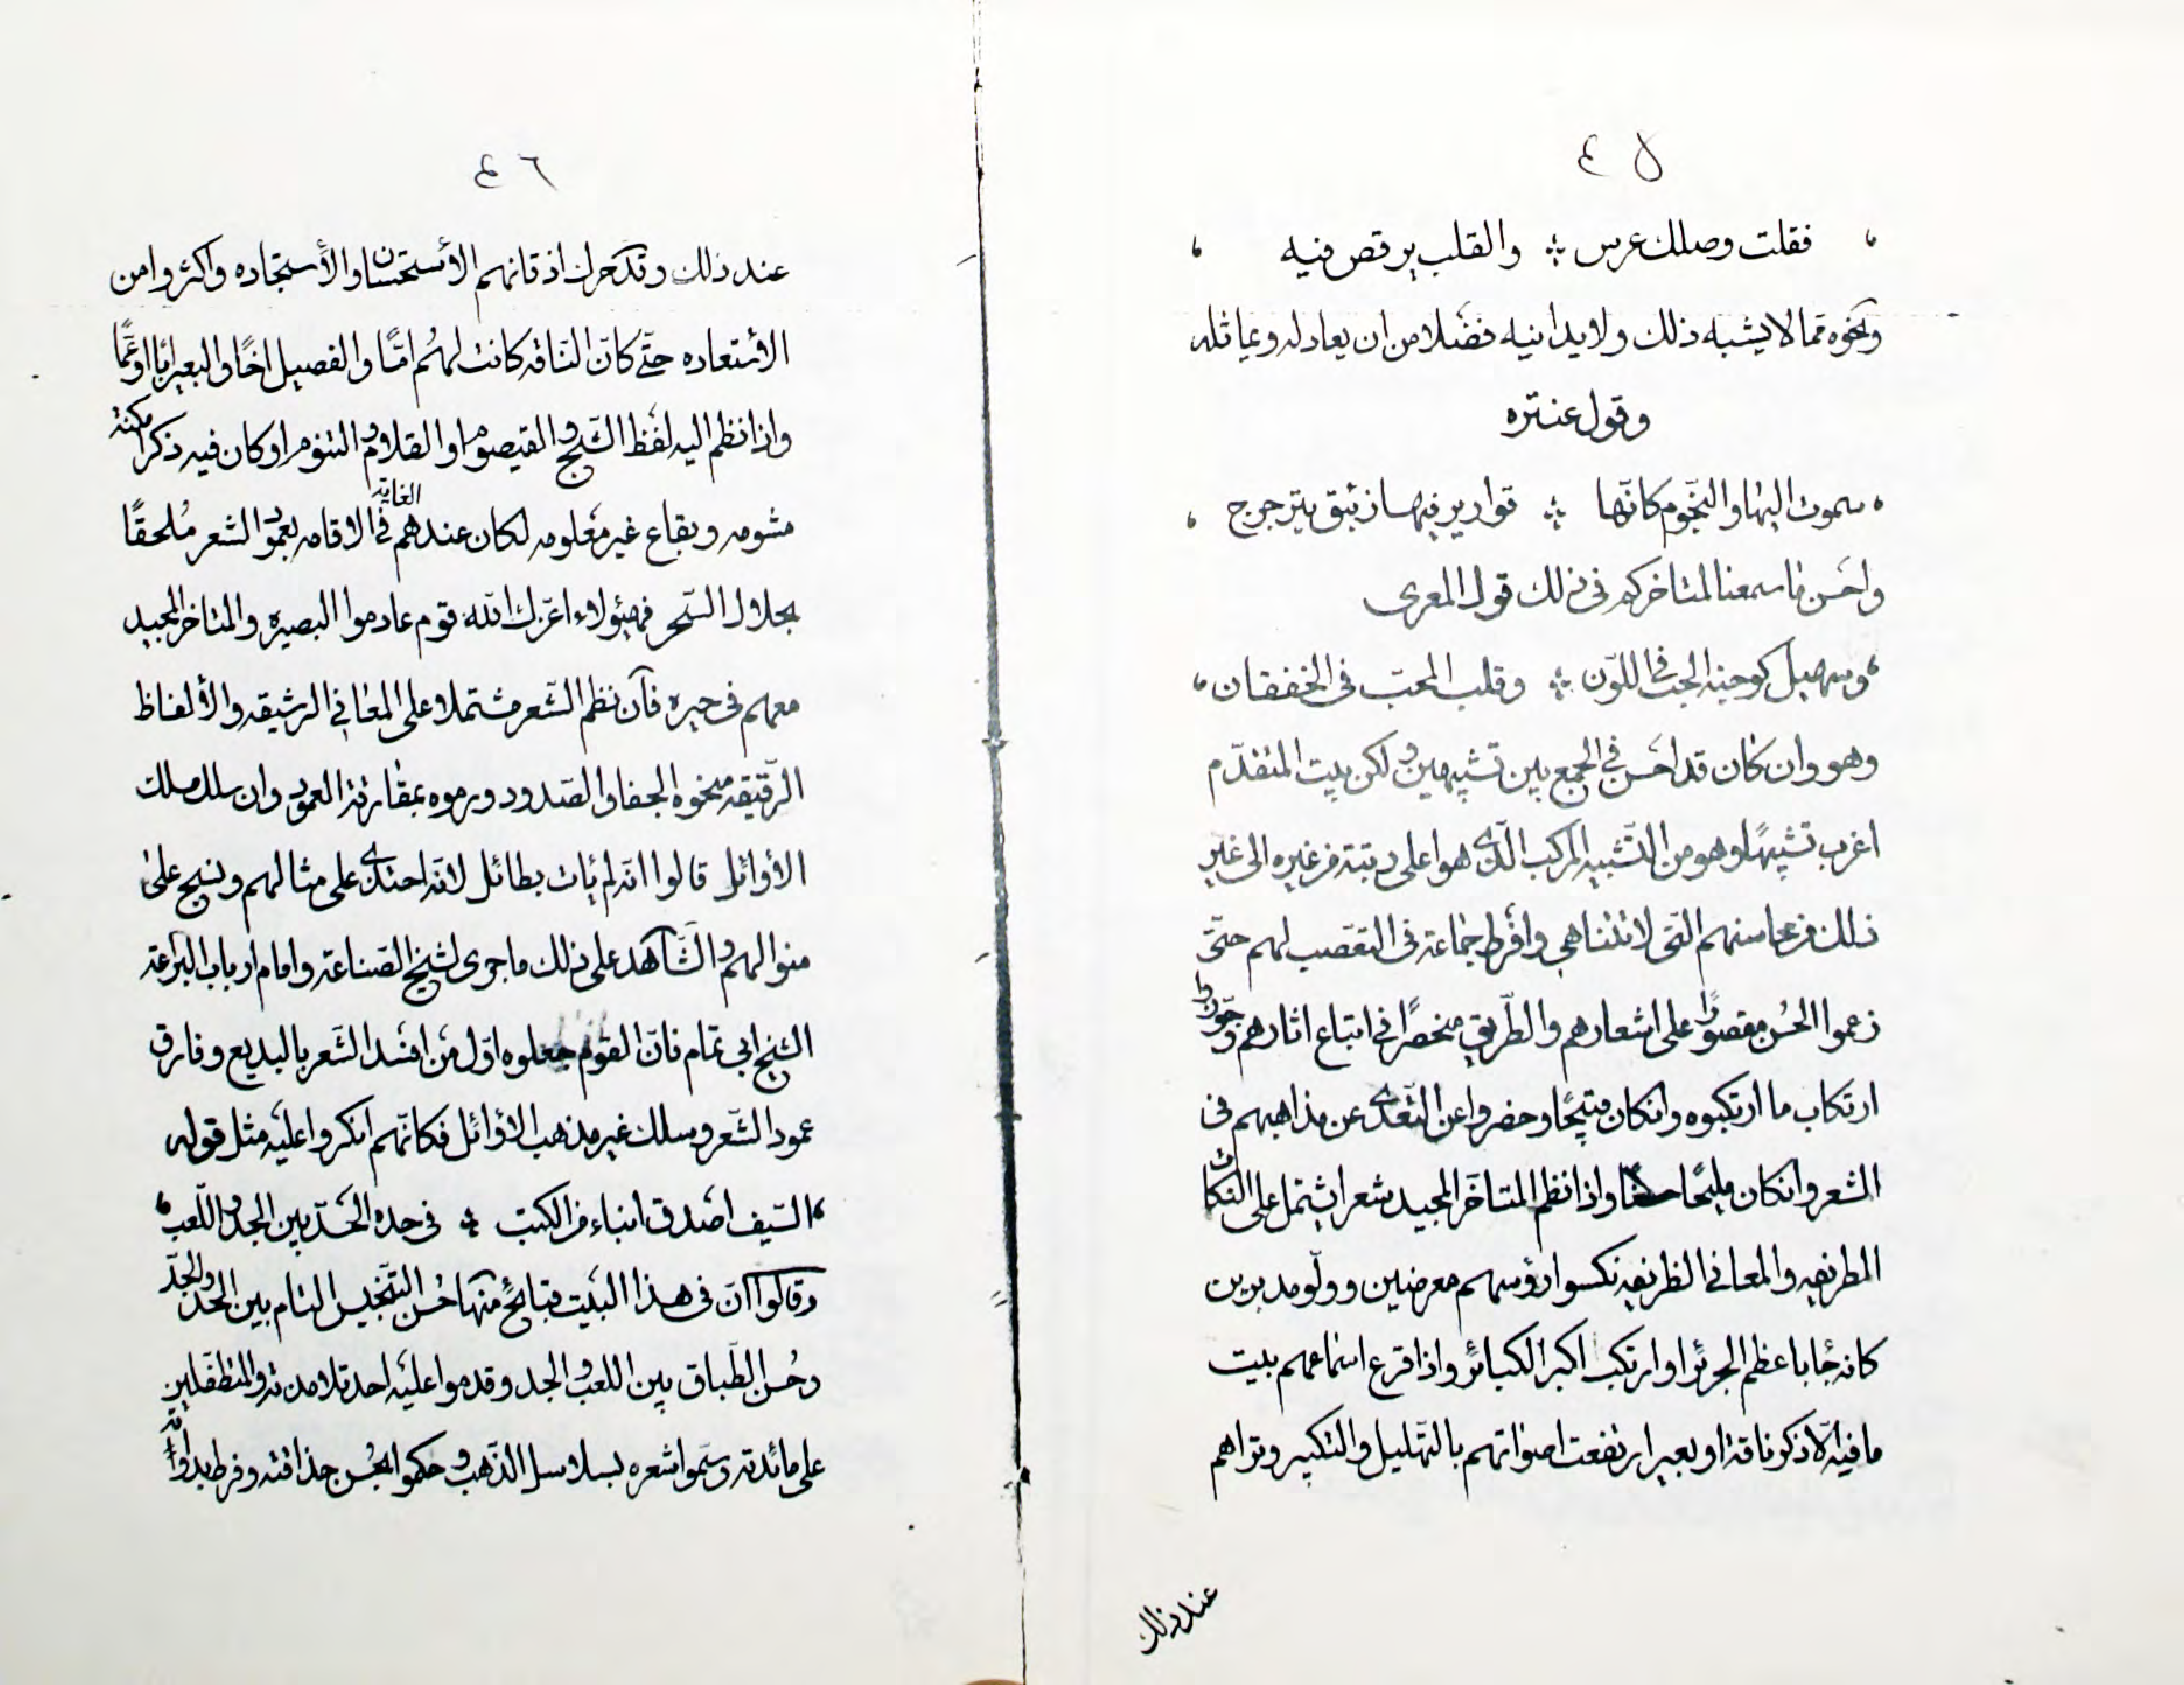 ٤٥
فقلت وصلك عرس ؞ والقلب يرقص فيه
ونحوه مما لا يشبه ذلك ولا يدانيه فضلا من ان يعادله ويماثله
وقول عنتره
سموت اليها والنجوم كانها ؞ قوارير فيها زئبق يترجرج
واحسن ما سمعنا لمتاخركم فى ذلك قول المعرى
وسهيل كوجنة الحب فى اللون ؞ وقلب المحب فى الخفقان
وهو وان كان قد احسن فى الجمع بين تشبيهين ولكن بيت المتقدّم
اغرب تشبيهًا وهو من التشبيه المركب الّذى هو اعلى رتبة من غيره الى غير
ذلك من محاسنهم التى لا تتناهى وافرط جماعة فى التعصب لهم حتّى
زعموا الحُسن مقصورًا على اشعارهم والطّريق منحصرًا فى اتباع اثارهم وجوّزوا
ارتكاب ما ارتكبوه وانكان قبيحًا وحضروا عن التعدى عن مذاهبهم فى
الشعر وانكان مليحًا حسنًا واذا نظم المتاخر المجيد شعرا يشتمل على النكات
المطربه والمعانى الظريفه نكسوا رؤسهم معرضين وولّو مدبرين
كانه جاء باعظم الجرئر او ارتكب اكبر الكبائر واذا قرع اسماعهم بيت
ما فيه الّا ذكر ناقة او بعير ارتفعت اصواتهم بالتهليل والتكبير وتراهم
عند ذلك
٤٦
عند ذلك وقد حرك اذقانهم الأستحسان والأستجاده واكثروا من
الأستعاده حتّى كانّ النّاقه كانت لهُم امّا والفصيل اخًا والبعير ابًا او عمًّا
واذا نظم اليه لفظ الشيح والقيصوم او القلام والتنوم او كان فيه ذكر امكنة
مشومه وبقاع غير معلومه لكان عندهم الغاية فى الاقامه بعمود الشعر مُلحقًا
بحلال السّحر فهؤلاء اعزّك اللّه قوم عادموا البصيرة والمتاخر المجيد
معهم فى حيره فآن نظم الشّعر مشتملا على المعانى الرشيقه والألفاظ
الرّقيقه منحوه الجفا والصّدود ورموه بمفارقة العمود وان سلك مسلك
الأوائل قالوا انّه لم يأت بطائل لانّه احتذى على مثالهم ونسج على
منوالهم والشّاهد على ذلك ما جرى لشيخ الصّناعة وامام ارباب البراعة
الشيخ ابى تمّام فانّ القوم جعلوه اوّل من افسد الشّعر بالبديع وفارق
عمود الشّعر وسلك غير مذهب الأوائل فكانّهم انكروا عليه مثل قوله
السّيف اصدق انباء من الكتب ؞ فى حده الحّد بين الجد واللّعب
وقالوا انّ فى هذا البيت قبائحٌ منها حُسن التّجنيس التام بين الحد والحدّ
وحُسن الطّباق بين اللعب والجد وقدموا عليه احد تلامذته والمتطفّلين
على مائدته وسمّوا شعره بسلاسل الذّهب وحكموا بحُسن حذاقته وفرط